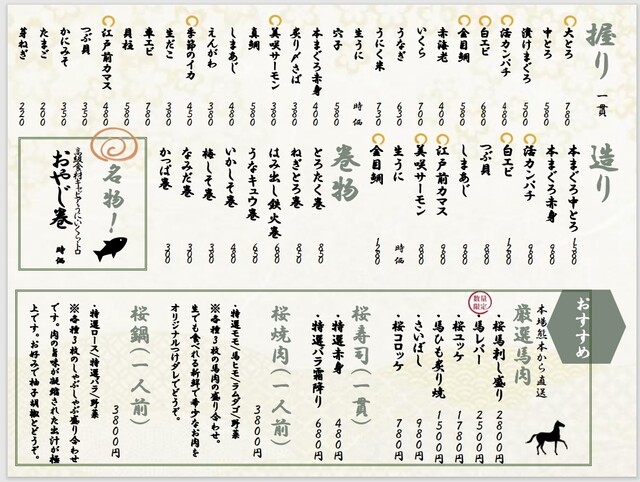 握り 一貫
大とろ 780
中とろ
漬けまぐろ
活カンバチ 480
白エビ 680
金目鯛 580
赤海老 400
いくら 700
うなぎ 630
うに
生うに 時価
穴子 580
本まぐろ赤身 400
炙り〆さば 380
美咲サーモン 380
真鯛
しまあじ 480
えんがわ 380
季節のイカ 450
生だこ 300
車エビ 780
貝柱 580
江戸前カマス 480
つぶ貝 350
かにみそ 350
たまご 200
芽ねぎ 220
造り
本まぐろ中とろ
本まぐろ赤身 980
活カンバチ 980
白エビ
つぶ貝 880
しまあじ 980
江戸前カマス 980
美咲サーモン 880
生うに 時価
金目鯛
巻物
とろたく巻 850
ねぎとろ巻
はみ出し鉄火巻
うなキュウ巻
いかしそ巻
梅しそ巻
なみだ巻
かっぱ巻
名物!
おやじ巻 時価
おすすめ
本場熊本から直送
厳選馬肉
・桜馬刺し盛り 2800円
数量限定
・馬レバー 2500円
・桜ユッケ 1780円
・馬ひも炙り焼 1500円
・さいぼし 980円
・桜コロッケ 780円
桜寿司(一貫)
・特選赤身 480円
・特選バラ霜降り 680円
桜焼肉(一人前)
3800円
・特選モモ/馬ヒモ/ラムダゴ/野菜
※各種3枚の馬肉の盛り合わせ。
生でも食べれる新鮮で希少なお肉を
オリジナルつけダレでどうぞ。
桜鍋(一人前)
3800円
・特選ロース/特選バラ/野菜
※各種3枚のしゃぶしゃぶ盛り合わせ
です。肉の旨味が凝縮された出汁が極
上です。お好みで柚子胡椒とどうぞ。